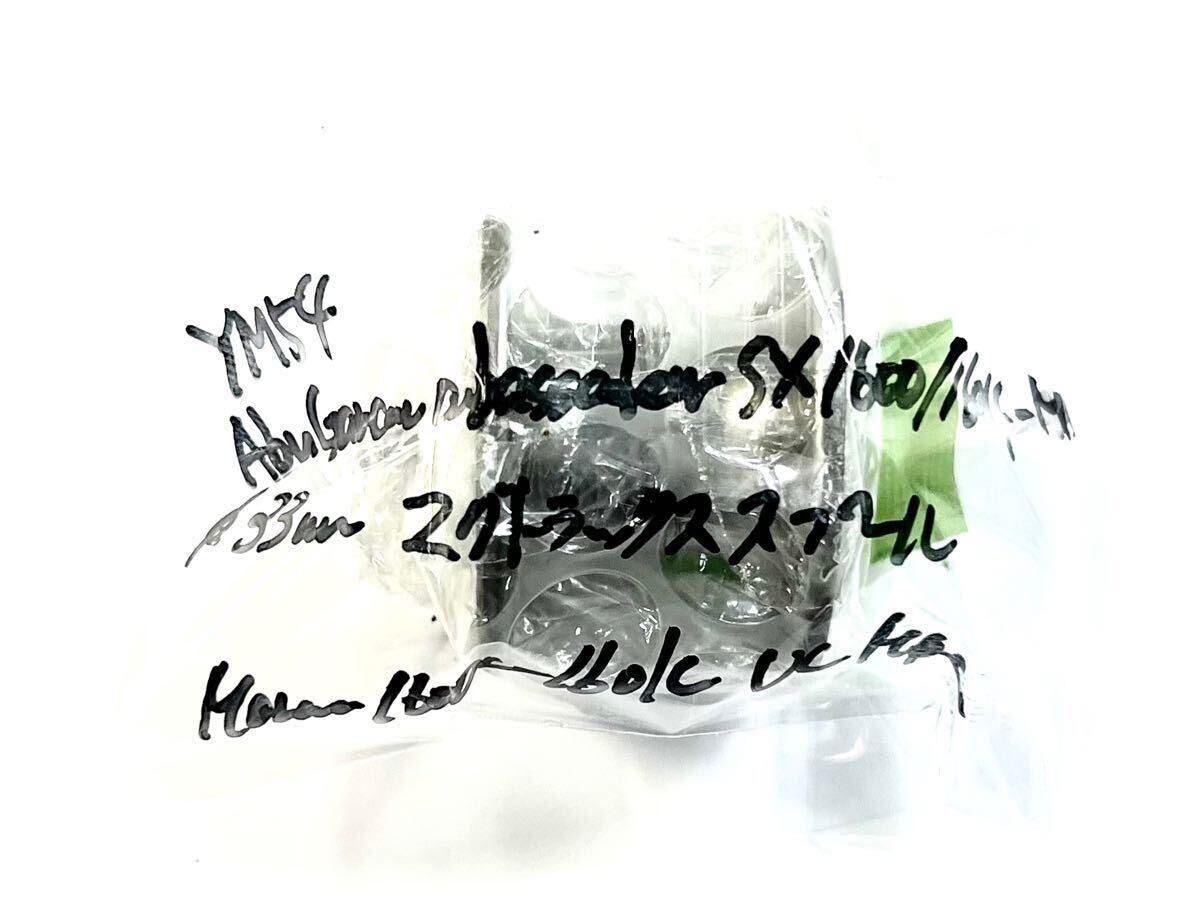 YM54
AbuGarcia Ambassadeur SX1600/1601C-M
φ33mm マグトラックススプール
Morrum 1600 ~ 1601C